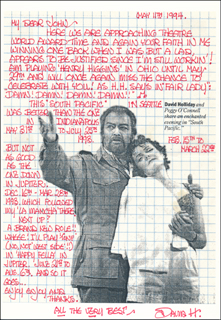 MAY 11TH, 1994.
MY DEAR JOHN~
HERE WE ARE APPROACHING THEATRE
WORLD AWARD TIME AND AGAIN YOUR FAITH IN MY
WINNING ONE BACK WHEN I WAS BUT A LAD,
APPEARS TO BE JUSTIFIED SINCE I'M STILL WORKIN'!
AM PLAYING "HENRY HIGGINS" IN OHIO UNTIL MAY
29TH AND WILL ONCE AGAIN MISS THE CHANCE TO
CELEBRATE WITH YOU! AS H.H. SAYS IN "FAIR LADY":
DAMN! DAMN! DAMN! DAMN!
THIS "SOUTH PACIFIC" IN SEATTLE
WAS BETTER THAN THE ONE
IN INDIANAPOLIS
MAY 31ST TO JULY 25TH
1993.
David Holliday and
Peggy O'Connell
share an enchanted
evening in "South
Pacific."
FEB. 15TH TO
MARCH 22ND
BUT NOT
AS GOOD
AS THE
ONE DOWN
IN JUPITER,
DEC. 16TH - MAR. 28TH
1993, WHICH FOLLOWED
MY "LA MANCHA" THERE.
NEXT UP?
A BRAND NEW ROLE!!
WHEE! I'LL PLAY "TONY"
(NO, NOT "WEST SIDE"!)
IN "HAPPY FELLA" IN
JUPITER, JUNE 28TH TO
AUG. 6TH, AND SO IT
GOES...
ENJOY, ENJOY AND
THANKS.
ALL THE VERY BEST~
DAVID H.